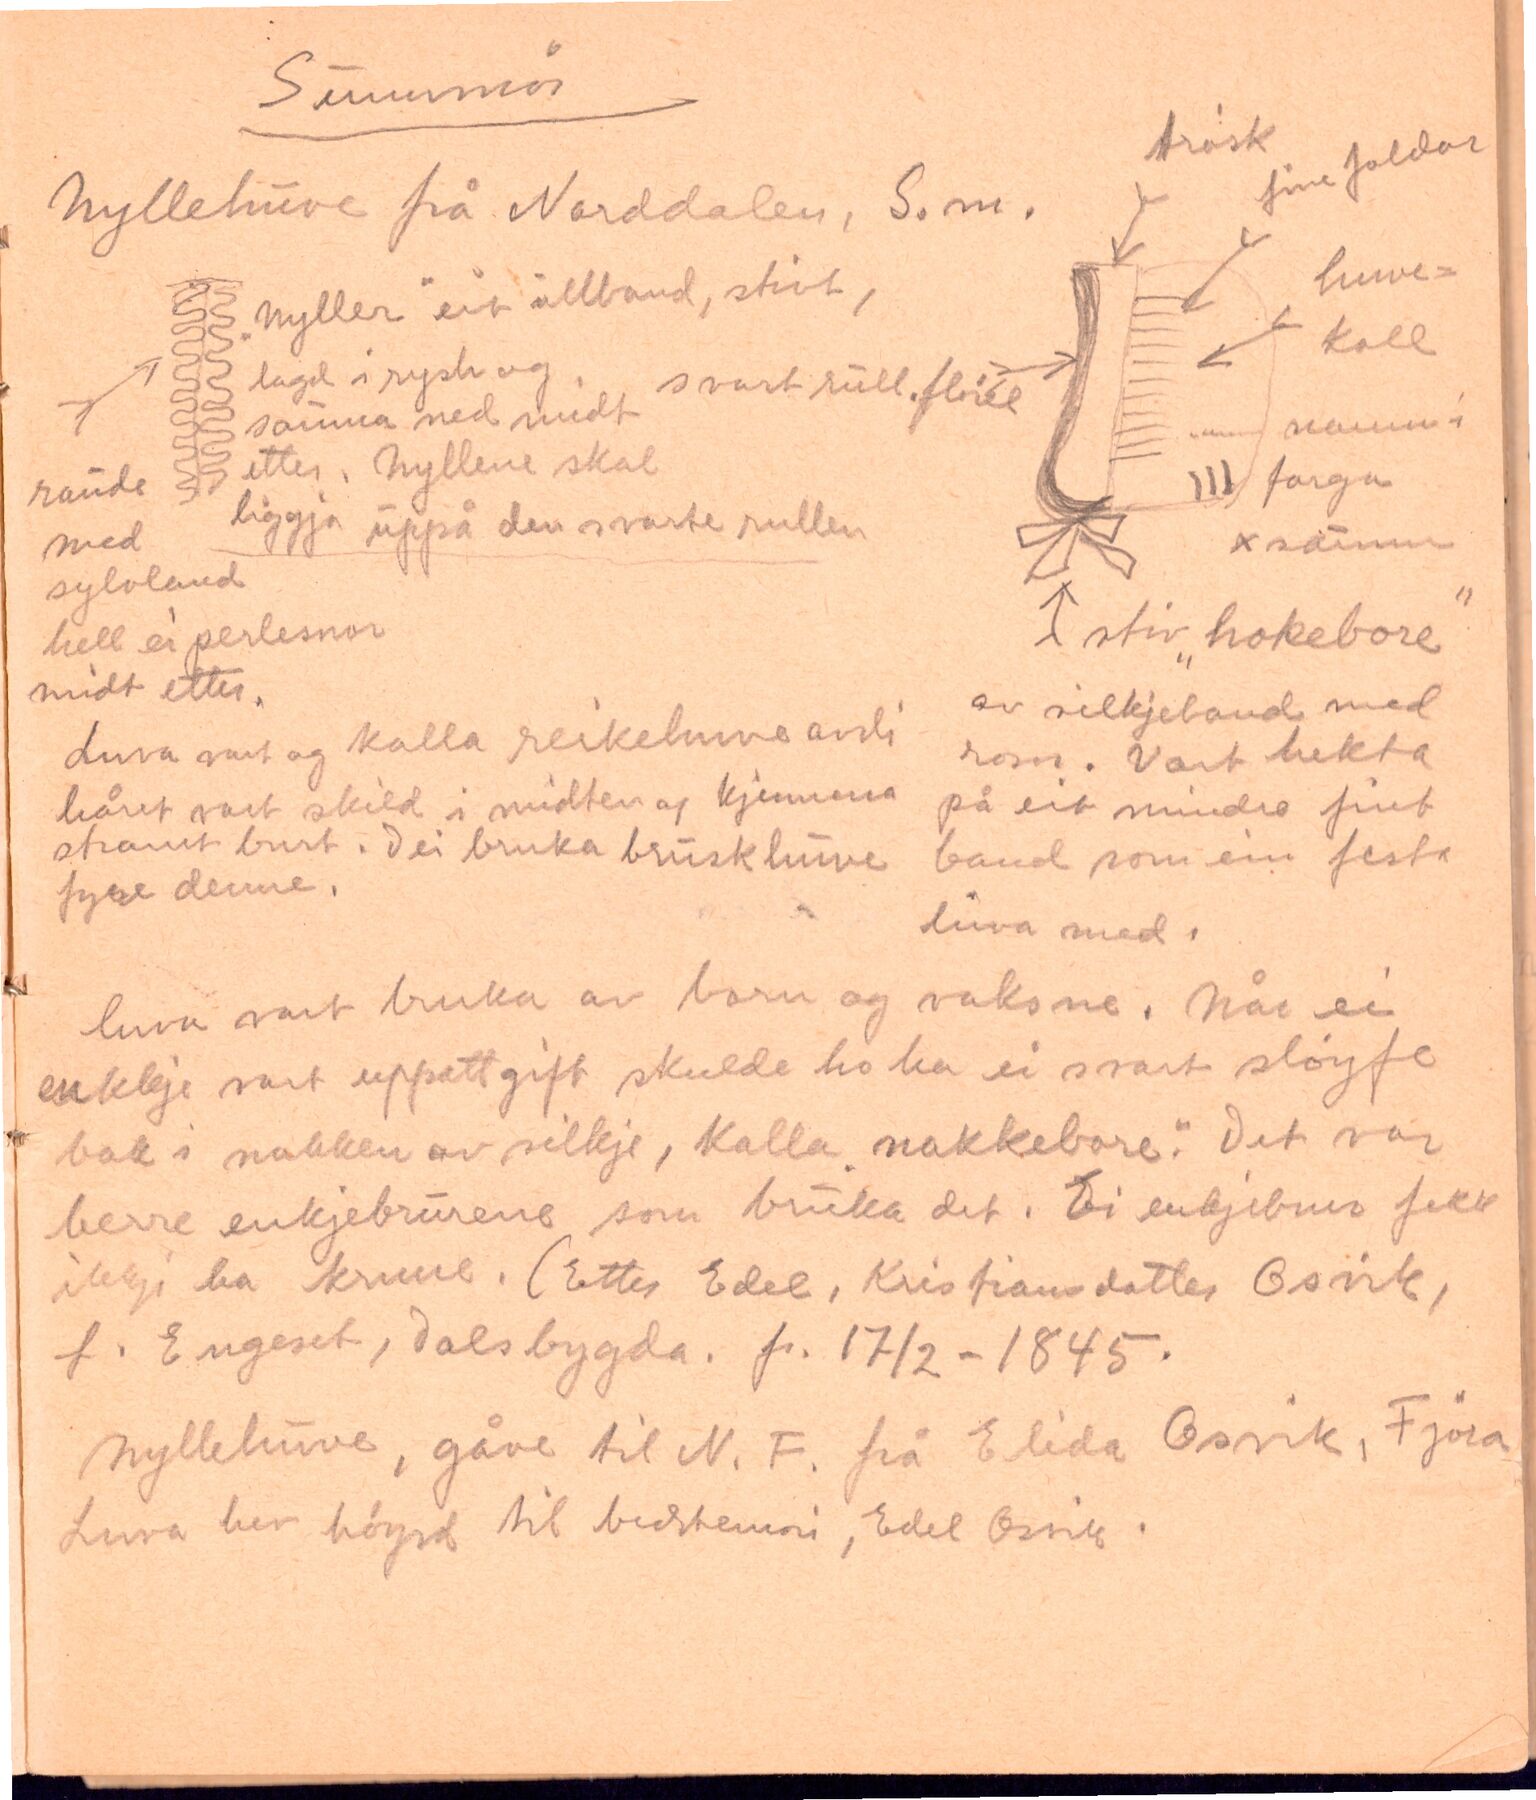 Sunnmör
Nyllehuve frå Norddalen, S.m.
trösk
fine foldar
huve=
koll
namn i
farga
x saum
"Nyller" eit ullband, stivt,
lagd i rysh og
sauma ned midt
etter. Nyllene skal
liggja uppå den svarte rullen
svart rull. flöiel
raude
med
sylvband
hell ei perlesnor
midt etter.
stiv "hokebore"
av silkjeband med
rosor. Vart hekta
på eit mindre fint
band som ein festa
luva med.
Luva vart og kalla reikehuve avdi
håret vart skild i midten og kjemma
stramt burt. Dei bruka brusk huve
fyre denne.
Luva vart bruka av born og vaksne. Når ei
enkkje vart uppattgift skulde ho ha ei svart slöyfe
bak i nakken av silkje, kalla "nakkebore". Det var
berre enkjebrurene som bruka det. Ei enkjebrur fekk
ikkje ha krune. (Etter Edel, Kristiansdotter Osvik,
f. Engeset, Dalsbygda. f. 17/2 - 1845.
Nyllehuve, gåve til N. F. frå Elida Osvik, Fjöra
Luva hev höyrd til bedstemori, Edel Osvik.